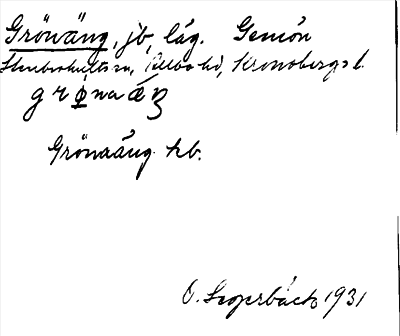 Grönäng, jb, låg. Gemön
Stenbrohults sn, Allbo hd, Kronobergs l.
Grönaäng hb.
O. Segerbäck 1931